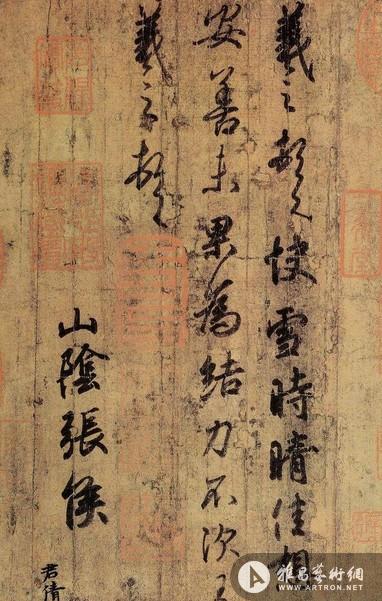 羲之頓首快雪時晴佳想
安善未果為結力不次王
羲之頓首
山陰張侯
君倩
雅昌藝術網
WWW.ARTRON.NET